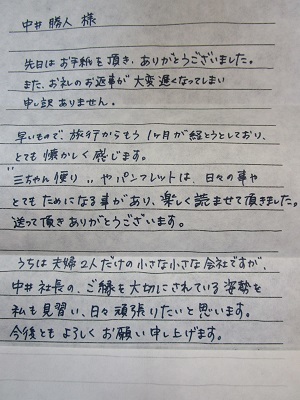 中井 勝人 様
先日は お手紙を 頂き、ありがとうございました。
また、お礼の お返事が 大変 遅くなってしまい
申し訳 ありません。
早いもので 旅行から もう 1ヶ月が 経とうとしており、
とても 懐かしく 感じます。
"三ちゃん便り"や パンフレットは、日々の事や
とても ためになる 事があり、楽しく 読ませて 頂きました。
送って頂き ありがとうございます。
うちは 夫婦 2人だけの 小さな 小さな 会社ですが、
中井 社長の、ご縁を 大切にされている 姿勢を
私も 見習い、日々 頑張りたいと 思います。
今後とも よろしく お願い 申し上げます。